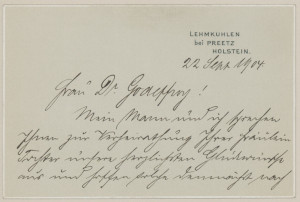 LEHMKUHLEN
bei PREETZ
HOLSTEIN.
22 Sept 1904
Frau Dr. Godeffroy!
Mein Mann und ich sprechen
Ihnen zur Verheirathung Ihrer Fräulein
Tochter unsere herzlichsten Glückwünsche
aus und hoffen solche demnächst noch